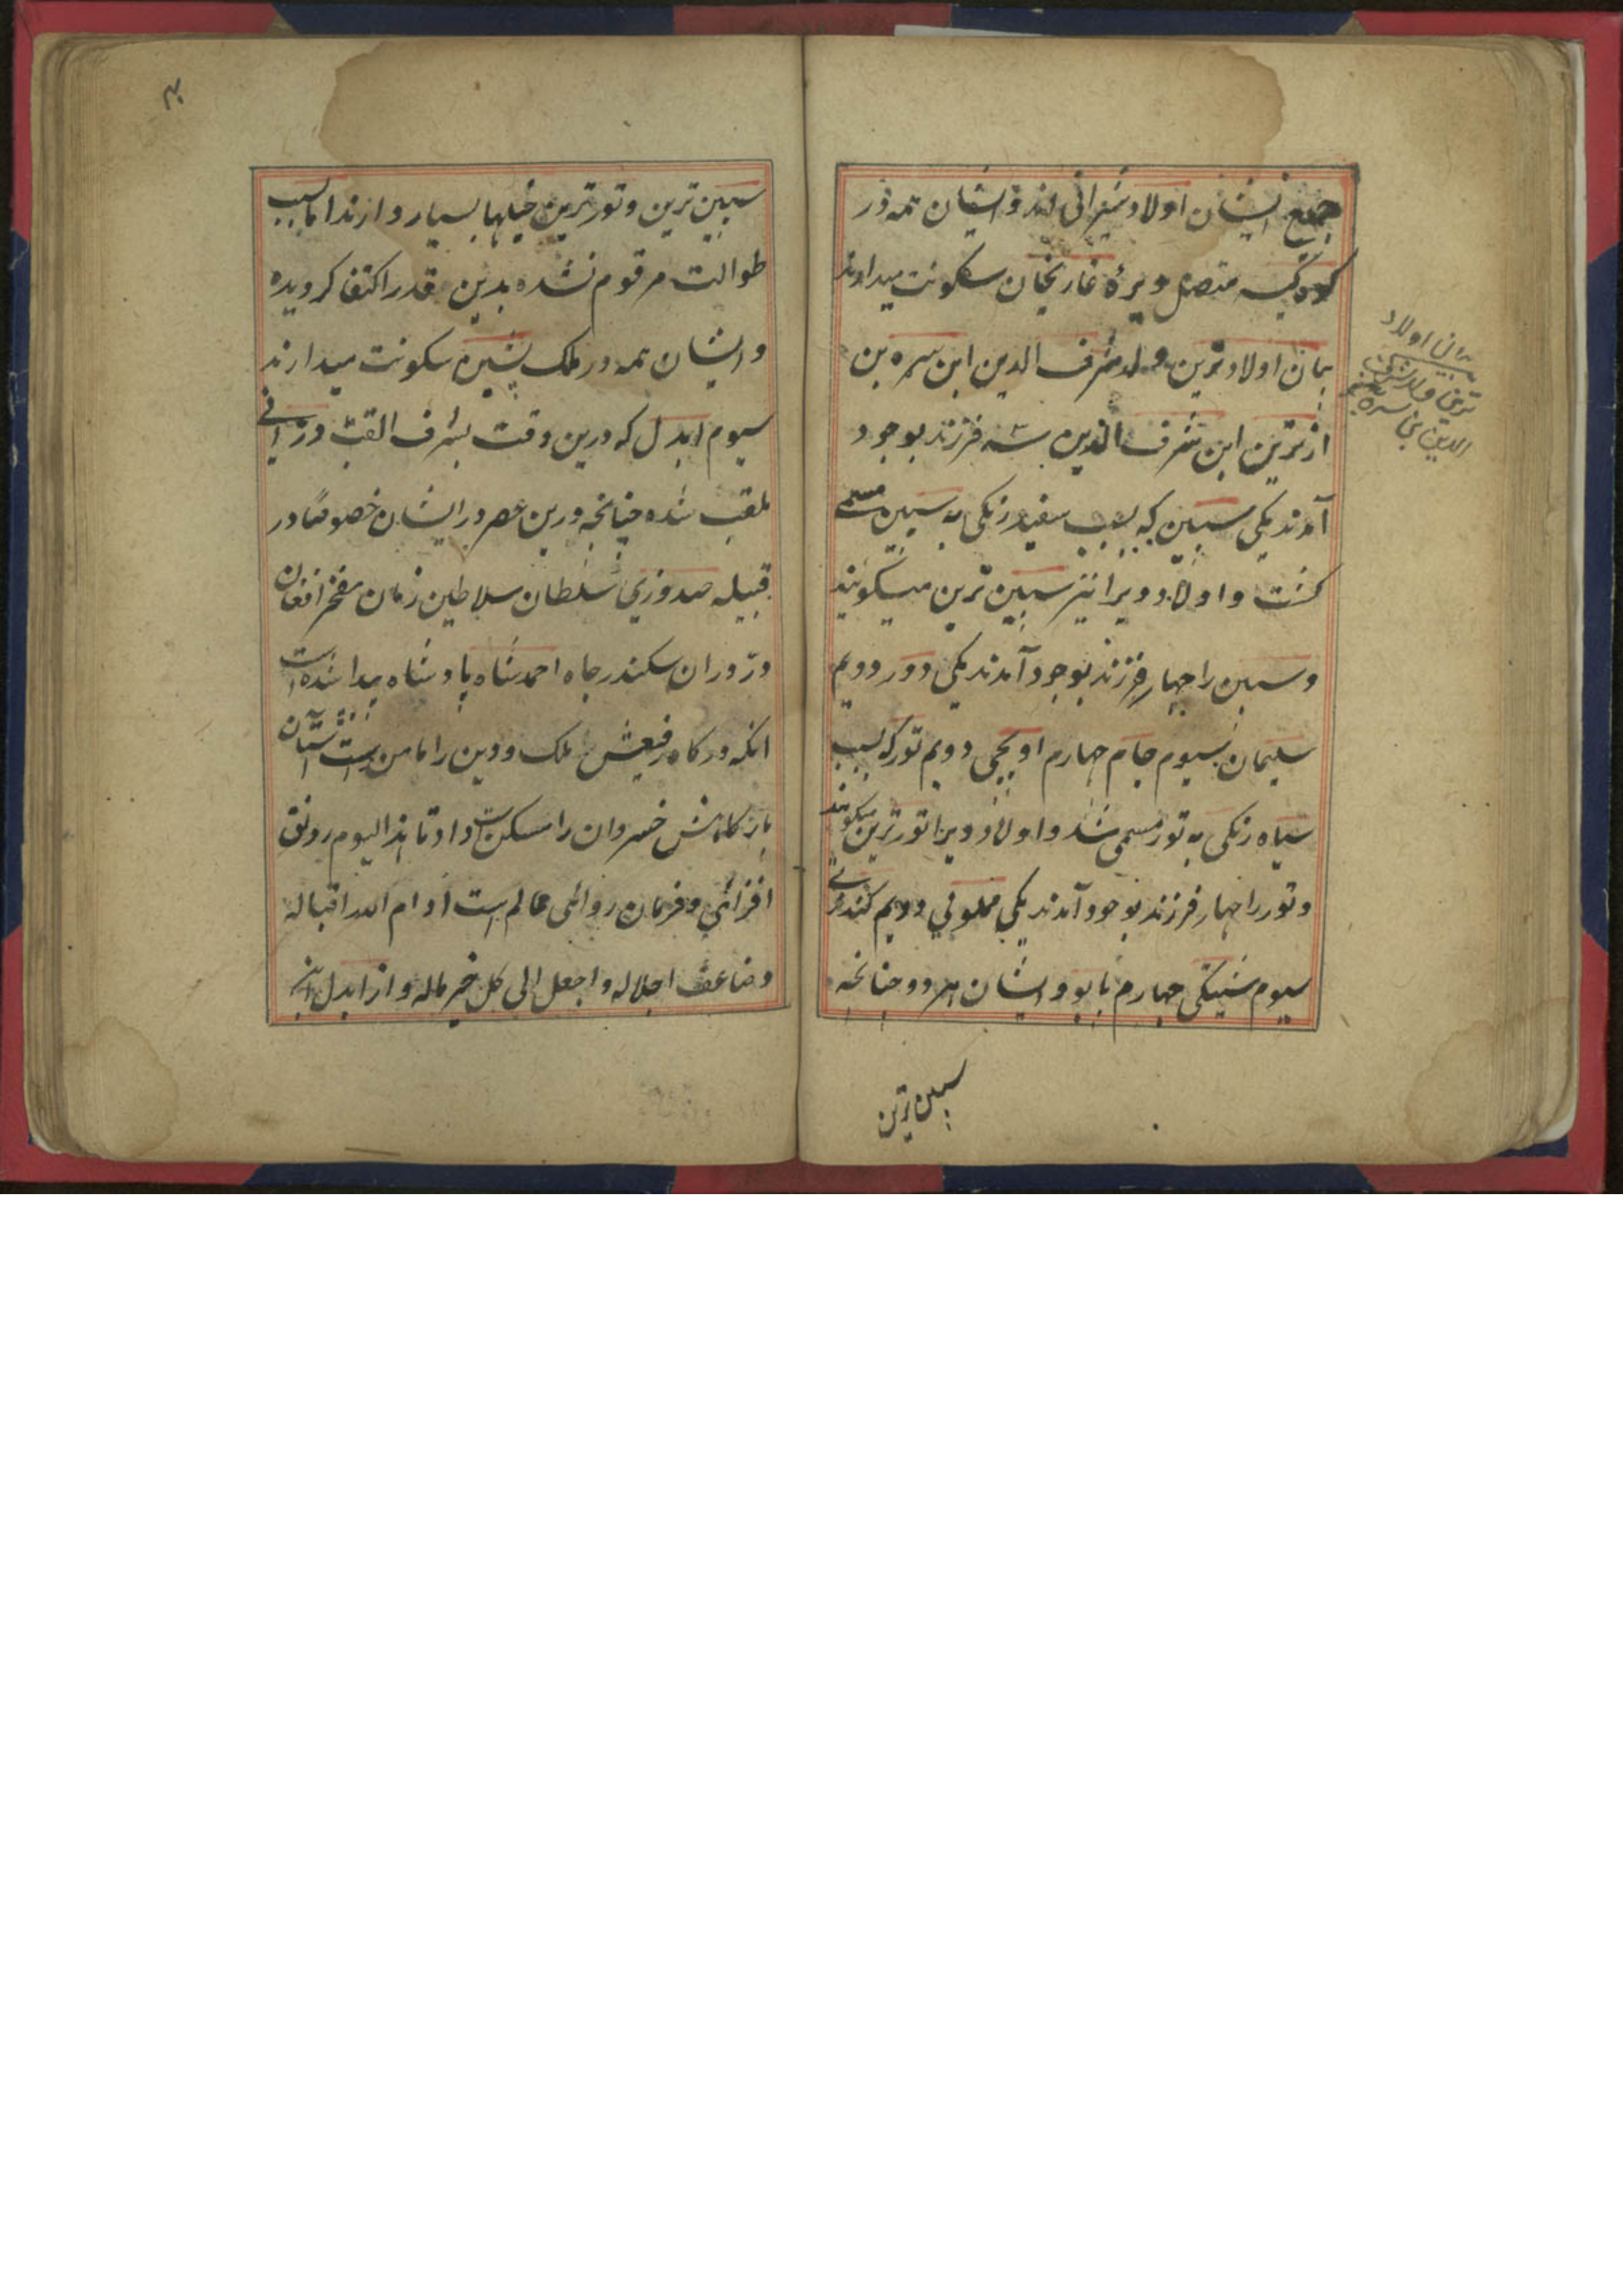 جمیع ایشان اولاد شیرانی اند و ایشان همه در
کوه کسه متصل دیرهٔ غازیخان سکونت میدارند
بیان اولاد ترین ولد شرف الدین ابن سره بن
از ترین ابن شرف الدین سه فرزند بوجود
آمدند یکی سپین که بسبب سفید رنگی به سپین مسمی
گشت و اولاد ویرا نیز سپین ترین میگویند
و سپین را چهار فرزند بوجود آمدند یکی دور دویم
سلیمان سیوم جام چهارم اوبچی دویم تور که بسبب
سیاه رنگی به تور مسمی شد و اولاد ویرا تور ترین میگویند
و تور را چهار فرزند بوجود آمدند یکی مملونی دویم کندزئی
سیوم سنیکی چهارم بابو و ایشان هر دو چنانچه
سپین ترین
بیان اولاد
ترین ولد شرف
الدین بن سره
سپین ترین و تور ترین خیلها بسیار دارند اما بسبب
طوالت مرقوم نشده بدین قدر اکتفا کردیده
و ایشان همه در ملک پشین سکونت میدارند
سیوم ابدل که درین وقت بشرف القب درانی
ملقب شده چنانچه درین عصر در ایشان خصوصاً در
قبیله صدوزی سلطان سلاطین زمان مفخر افغان
درّ دوران سکندر جاه احمد شاه پادشاه پیدا شده است
انکه درکاه رفیعش ملک و دین را مامن است آستان
بارکاهش خسروان را مسکن است داد تا هذا الیوم رونق
افزائی و فرمان روائی عالم است ادام الله اقباله
و ضاعف اجلاله و اجعل الی کل خیر مآله و از ابدل ابن